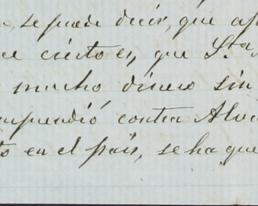 se puede decir, que
cierto es, que Sta
mucho dinero sin
contra
en el país, se ha que